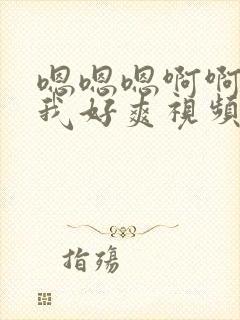 嗯嗯嗯啊啊
我好爽視頻
指殤